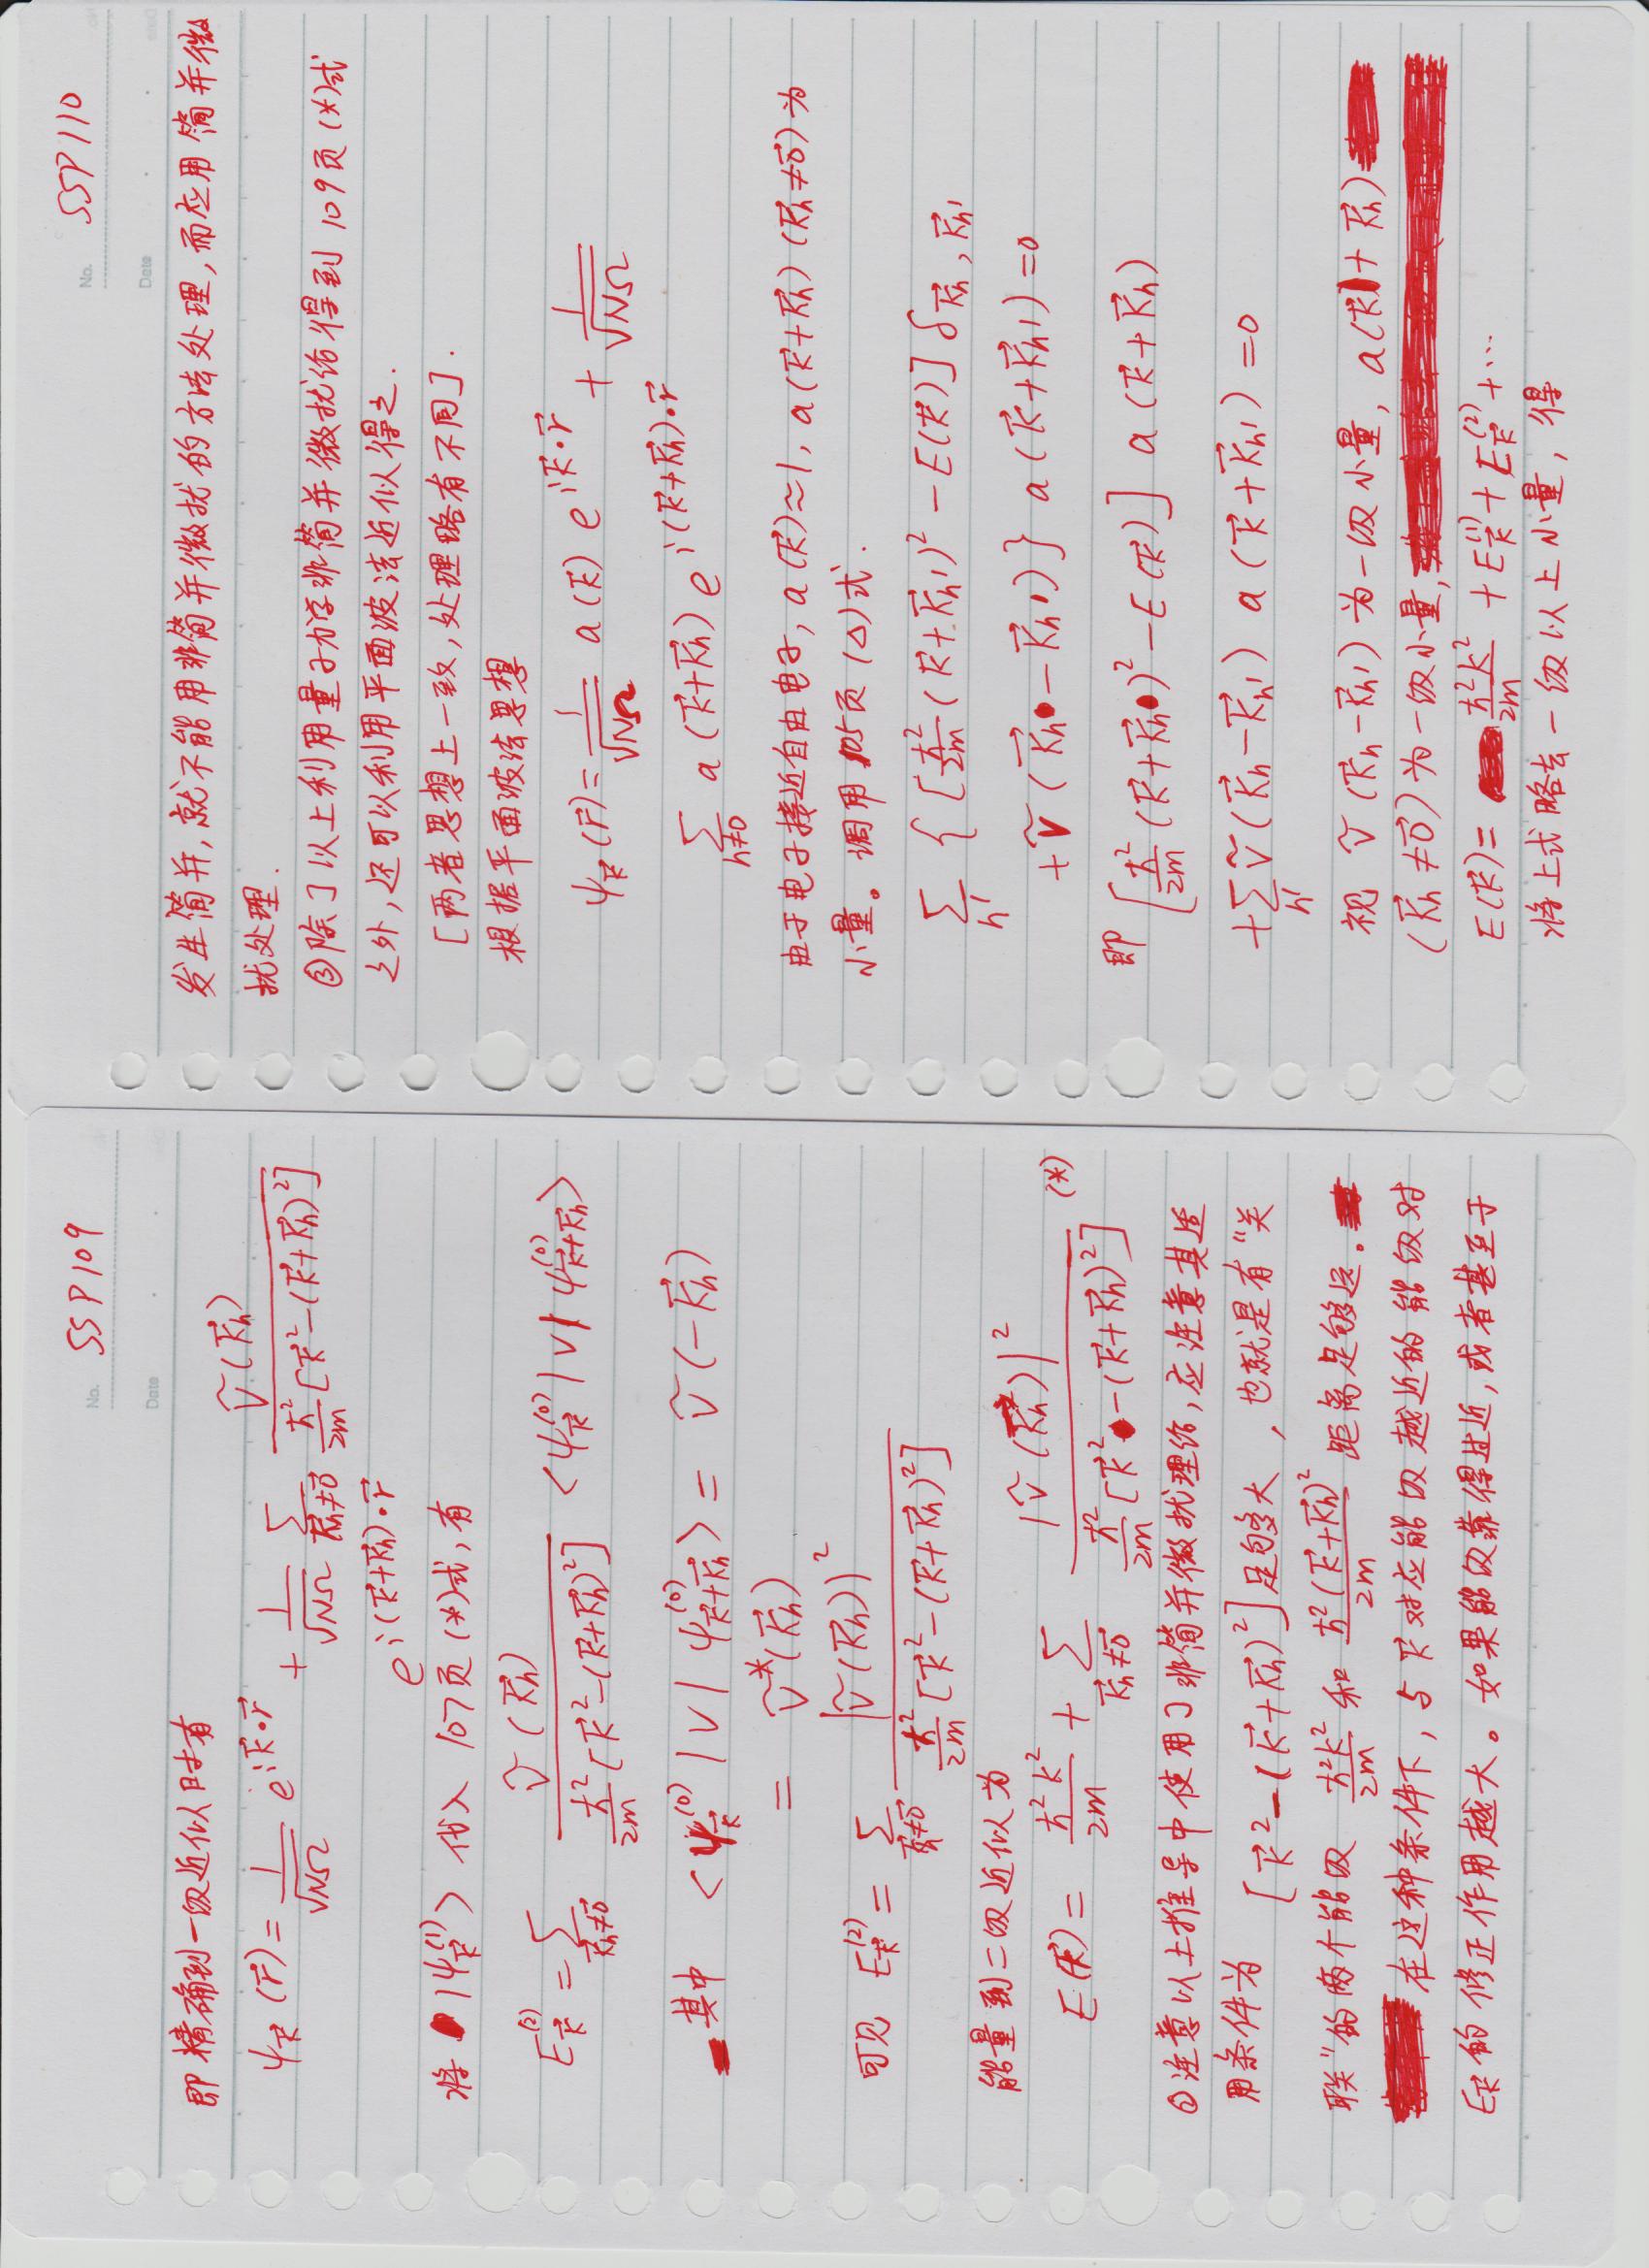 No. SSP109
Date
即精确到一级近似时有
ψ_k⃗(r⃗) = 1/√(NΩ) e^{ik⃗·r⃗} + 1/√(NΩ) Σ_{K⃗h≠0⃗} Ṽ(K⃗h) / (ħ²/2m [k⃗² − (k⃗+K⃗h)²])
e^{i(k⃗+K⃗h)·r⃗}
将 |ψ_k⃗^(1)⟩ 代入 107页(*)式, 有
E_k⃗^(2) = Σ_{K⃗h≠0⃗} Ṽ(K⃗h) / (ħ²/2m [k⃗² − (k⃗+K⃗h)²]) ⟨ψ_k⃗^(0)|V|ψ_{k⃗+K⃗h}^(0)⟩
其中 ⟨ψ_k⃗^(0)|V|ψ_{k⃗+K⃗h}^(0)⟩ = Ṽ(−K⃗h)
= Ṽ*(K⃗h)
可见 E_k⃗^(2) = Σ_{K⃗h≠0⃗} |Ṽ(K⃗h)|² / (ħ²/2m [k⃗² − (k⃗+K⃗h)²])
能量到二级近似为
E(k⃗) = ħ²k²/2m + Σ_{K⃗h≠0⃗} |Ṽ(K⃗h)|² / (ħ²/2m [k⃗² − (k⃗+K⃗h)²]) (*)
②注意以上推导中使用了非简并微扰理论, 应注意其适
用条件为 [k⃗² − (k⃗+K⃗h)²] 足够大, 也就是有“关
联”的两个能级 ħ²k²/2m 和 ħ²(k⃗+K⃗h)²/2m 距离足够远。
在这种条件下, 与 k⃗ 对应能级越近的能级对
E_k⃗ 的修正作用越大。如果能级靠得过近, 或者甚至于
No. SSP110
Date
发生简并, 就不能用非简并微扰的方法处理, 而应用简并微
扰处理.
③除了以上利用量子力学非简并微扰论得到 109页(*)式
之外, 还可以利用平面波法近似得之.
[两者思想上一致, 处理略有不同].
根据平面波法思想
ψ_k⃗(r⃗) = 1/√(NΩ) a(k⃗) e^{ik⃗·r⃗} + 1/√(NΩ)
Σ_{h≠0} a(k⃗+K⃗h) e^{i(k⃗+K⃗h)·r⃗}
由于电子接近自由电子, a(k⃗)≈1, a(k⃗+K⃗h) (K⃗h≠0⃗) 为
小量。调用 105页 (Δ)式.
Σ_{h'} { [ħ²/2m (k⃗+K⃗h')² − E(k⃗)] δ_{K⃗h, K⃗h'}
+ Ṽ(K⃗h − K⃗h') } a(k⃗+K⃗h') = 0
即 [ħ²/2m (k⃗+K⃗h)² − E(k⃗)] a(k⃗+K⃗h)
+ Σ_{h'} Ṽ(K⃗h − K⃗h') a(k⃗+K⃗h') = 0
视 Ṽ(K⃗h − K⃗h') 为一级小量, a(k⃗ + K⃗h)
(K⃗h ≠ 0⃗) 为一级小量,
E(k⃗) = ħ²k²/2m + E_k⃗^(1) + E_k⃗^(2) + ⋯
将上式略去一级以上小量, 得